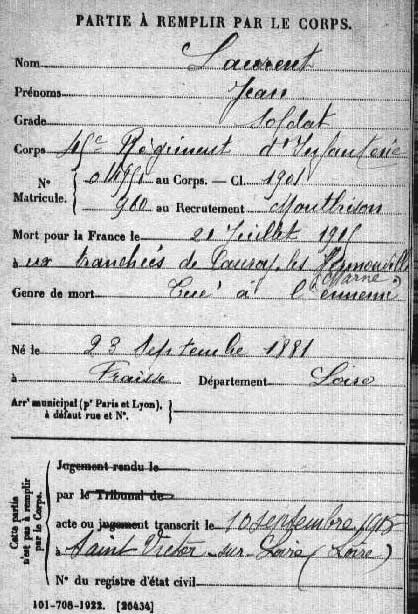 PARTIE À REMPLIR PAR LE CORPS.
Nom Laurent
Prénoms Jean
Grade Soldat
Corps Régiment d'Infanterie
N° Matricule. { au Corps. — Cl. 1901
960 au Recrutement Montbrison
Mort pour la France le 21 Juillet 1915
aux tranchées de les
(Marne)
Genre de mort Tué à l'ennemi
Né le 23 Septembre 1881
à Fraisse Département Loire
Arrt municipal (pr Paris et Lyon),
à défaut rue et N°. }
Cette partie n'est pas à remplir par le Corps.
Jugement rendu le
par le Tribunal de
acte ou jugement transcrit le 10 septembre 1915
à Saint Victor-sur-Loire (Loire)
N° du registre d'état civil
101-708-1922. [26434]